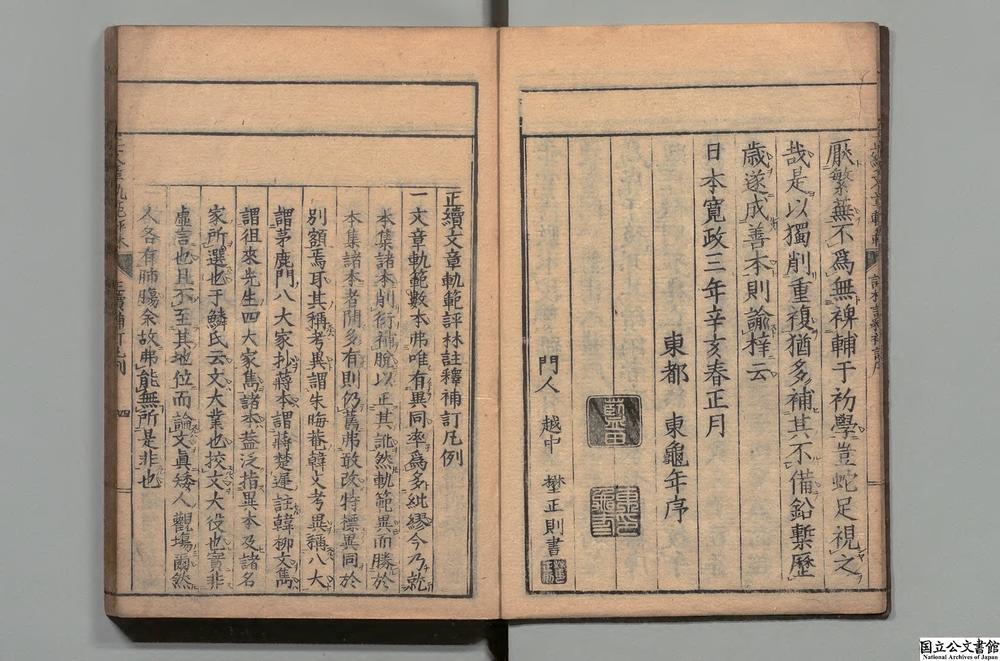 厭繁蕪不爲無裨輔于初學豈蛇足視之
哉是以獨削重複猶多補其不備鉛槧歷
歲遂成善本則諭梓云
日本寬政三年辛亥春正月
東都 東龜年序
藍田
門人 越中 樊正則書
正續文章軌範評林註釋補訂凡例
一文章軌範數本弗唯有異同率爲多紕繆今乃就
本集諸本削衍補脫以正其訛然軌範異而勝於
本集諸本者間多有則仍舊弗敢改特標異同於
別額焉耳其稱考異謂朱晦菴韓文考異稱八大
謂茅鹿門八大家抄蔣本謂蔣楚遲註韓柳文雋
謂徂來先生四大家雋諸本益泛指異本及諸名
家所選也于鱗氏云文大業也挍文大役也實非
虛言也且不至其地位而論文眞矮人觀塲爾然
人各有肺腸余故弗能無所是非也
四
国立公文書館
National Archives of Japan